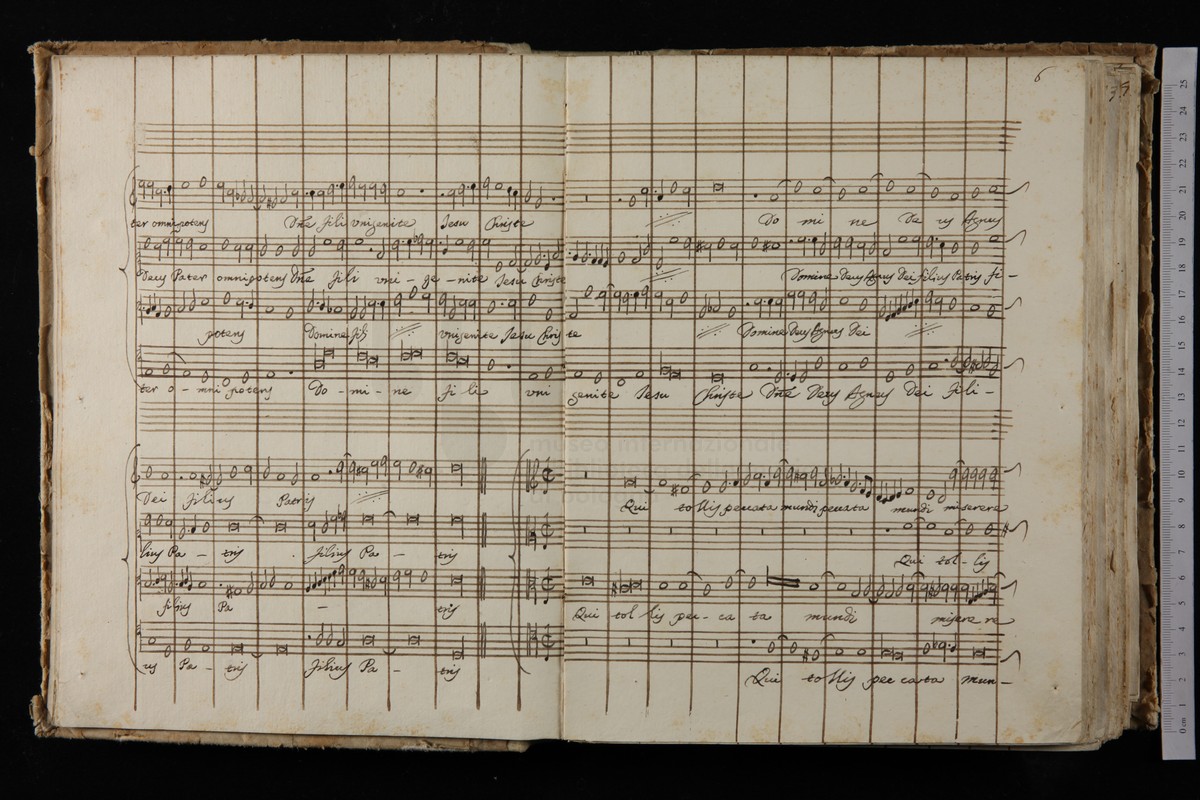 6
35
ter omnipotens Dne Fili Unigenite Iesu Christe Do mi ne De us Agnus
Deus Pater omnipotens Dne Fili uni - ge - nite Iesu Christe Domine Deus Agnus Dei Filius Patris fi -
potens Domine Fili unigenite Iesu Chris te Domine Deus Agnus Dei
ter o - mni potens Do - mi - ne Fi li uni genite Iesu Christe Dne Deus Agnus Dei Fili -
museo internazionale
Dei Filius Patris Qui tollis peccata mundi peccata mundi miserere
lius Pa - tris . Filius Pa - tris Qui tol - lis
filius Pa - tris Qui tol lis pec - ca ta mundi misere re
us Pa - tris Filius Pa - tris Qui tollis pec cata mun -
25 24 23 22 21 20 19 18 17 16 15 14 13 12 11 10 9 8 7 6 5 4 3 2 1 0 cm